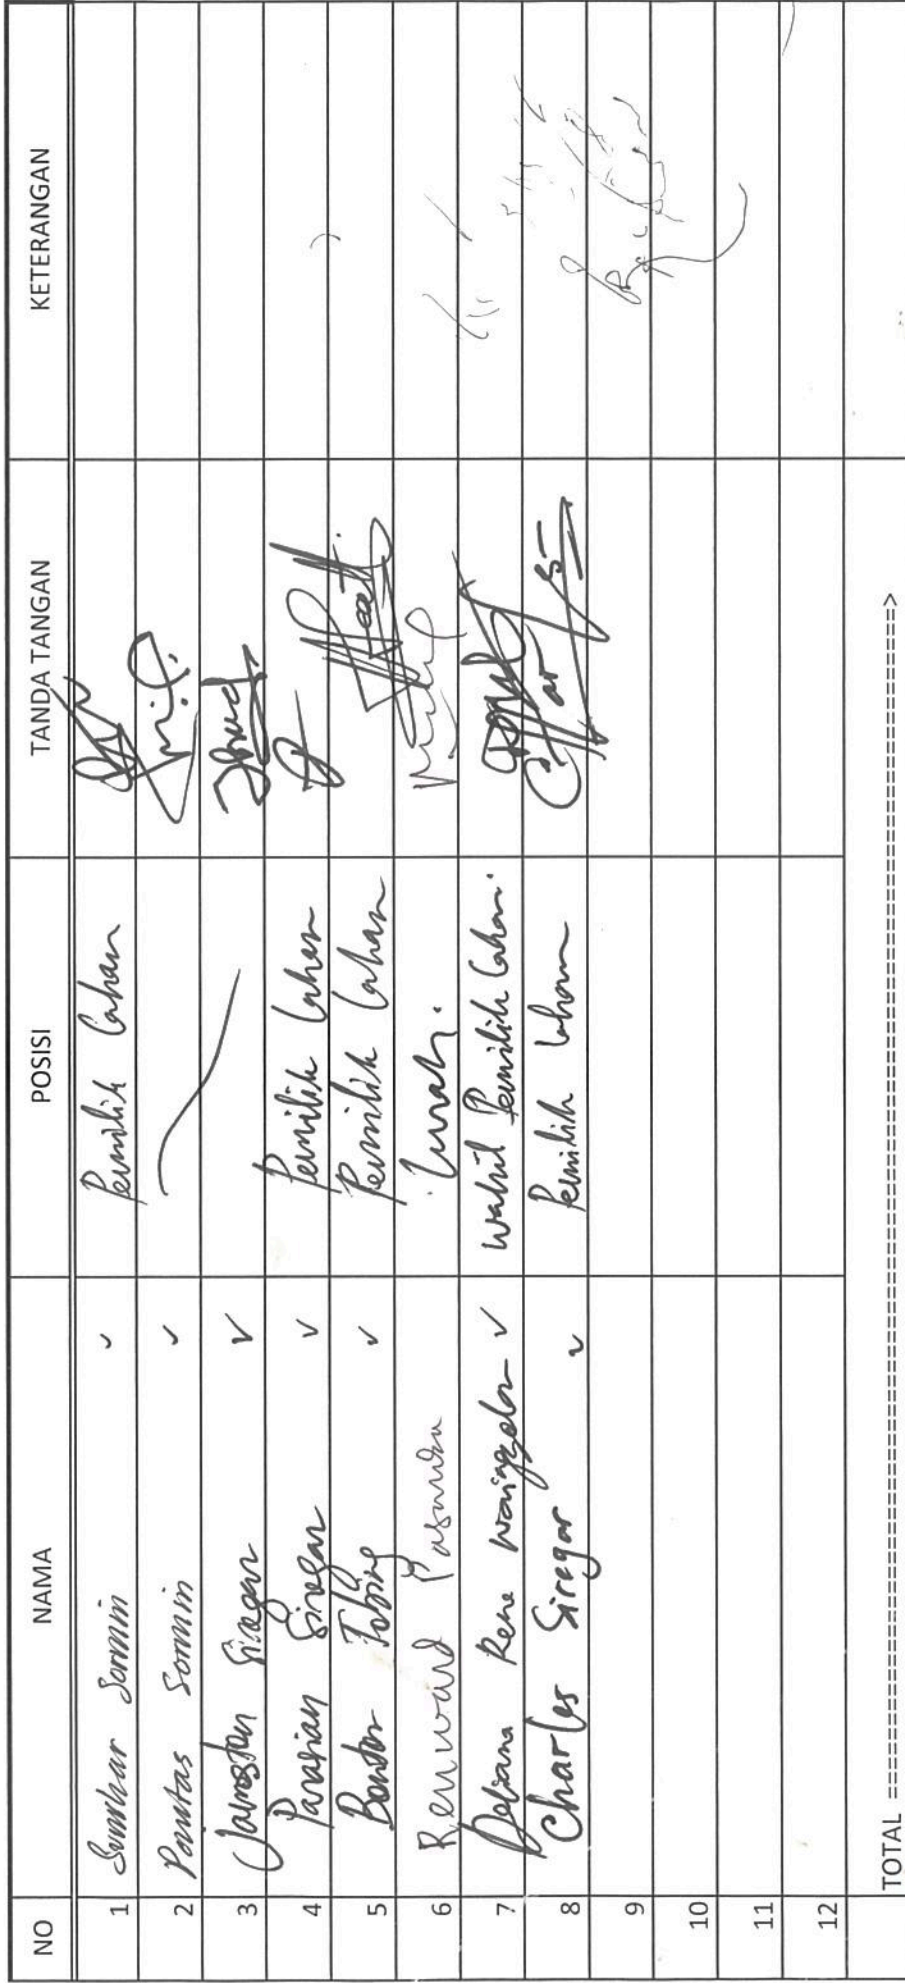 NO NAMA POSISI TANDA TANGAN KETERANGAN
1 Sumihar Sormin ✓ Pemilik Lahan
2 Pantas Sormin ✓
3 Siregar ✓
4 Parasian Siregar ✓ Pemilik Lahan
5 Bontor Tobing ✓ Pemilik Lahan
6 Renward Pasaribu Lurah.
7 Rene ✓ Wakil Pemilik Lahan.
8 Charles Siregar ✓ Pemilik Lahan
9
10
11
12
TOTAL ==========================================================================================>